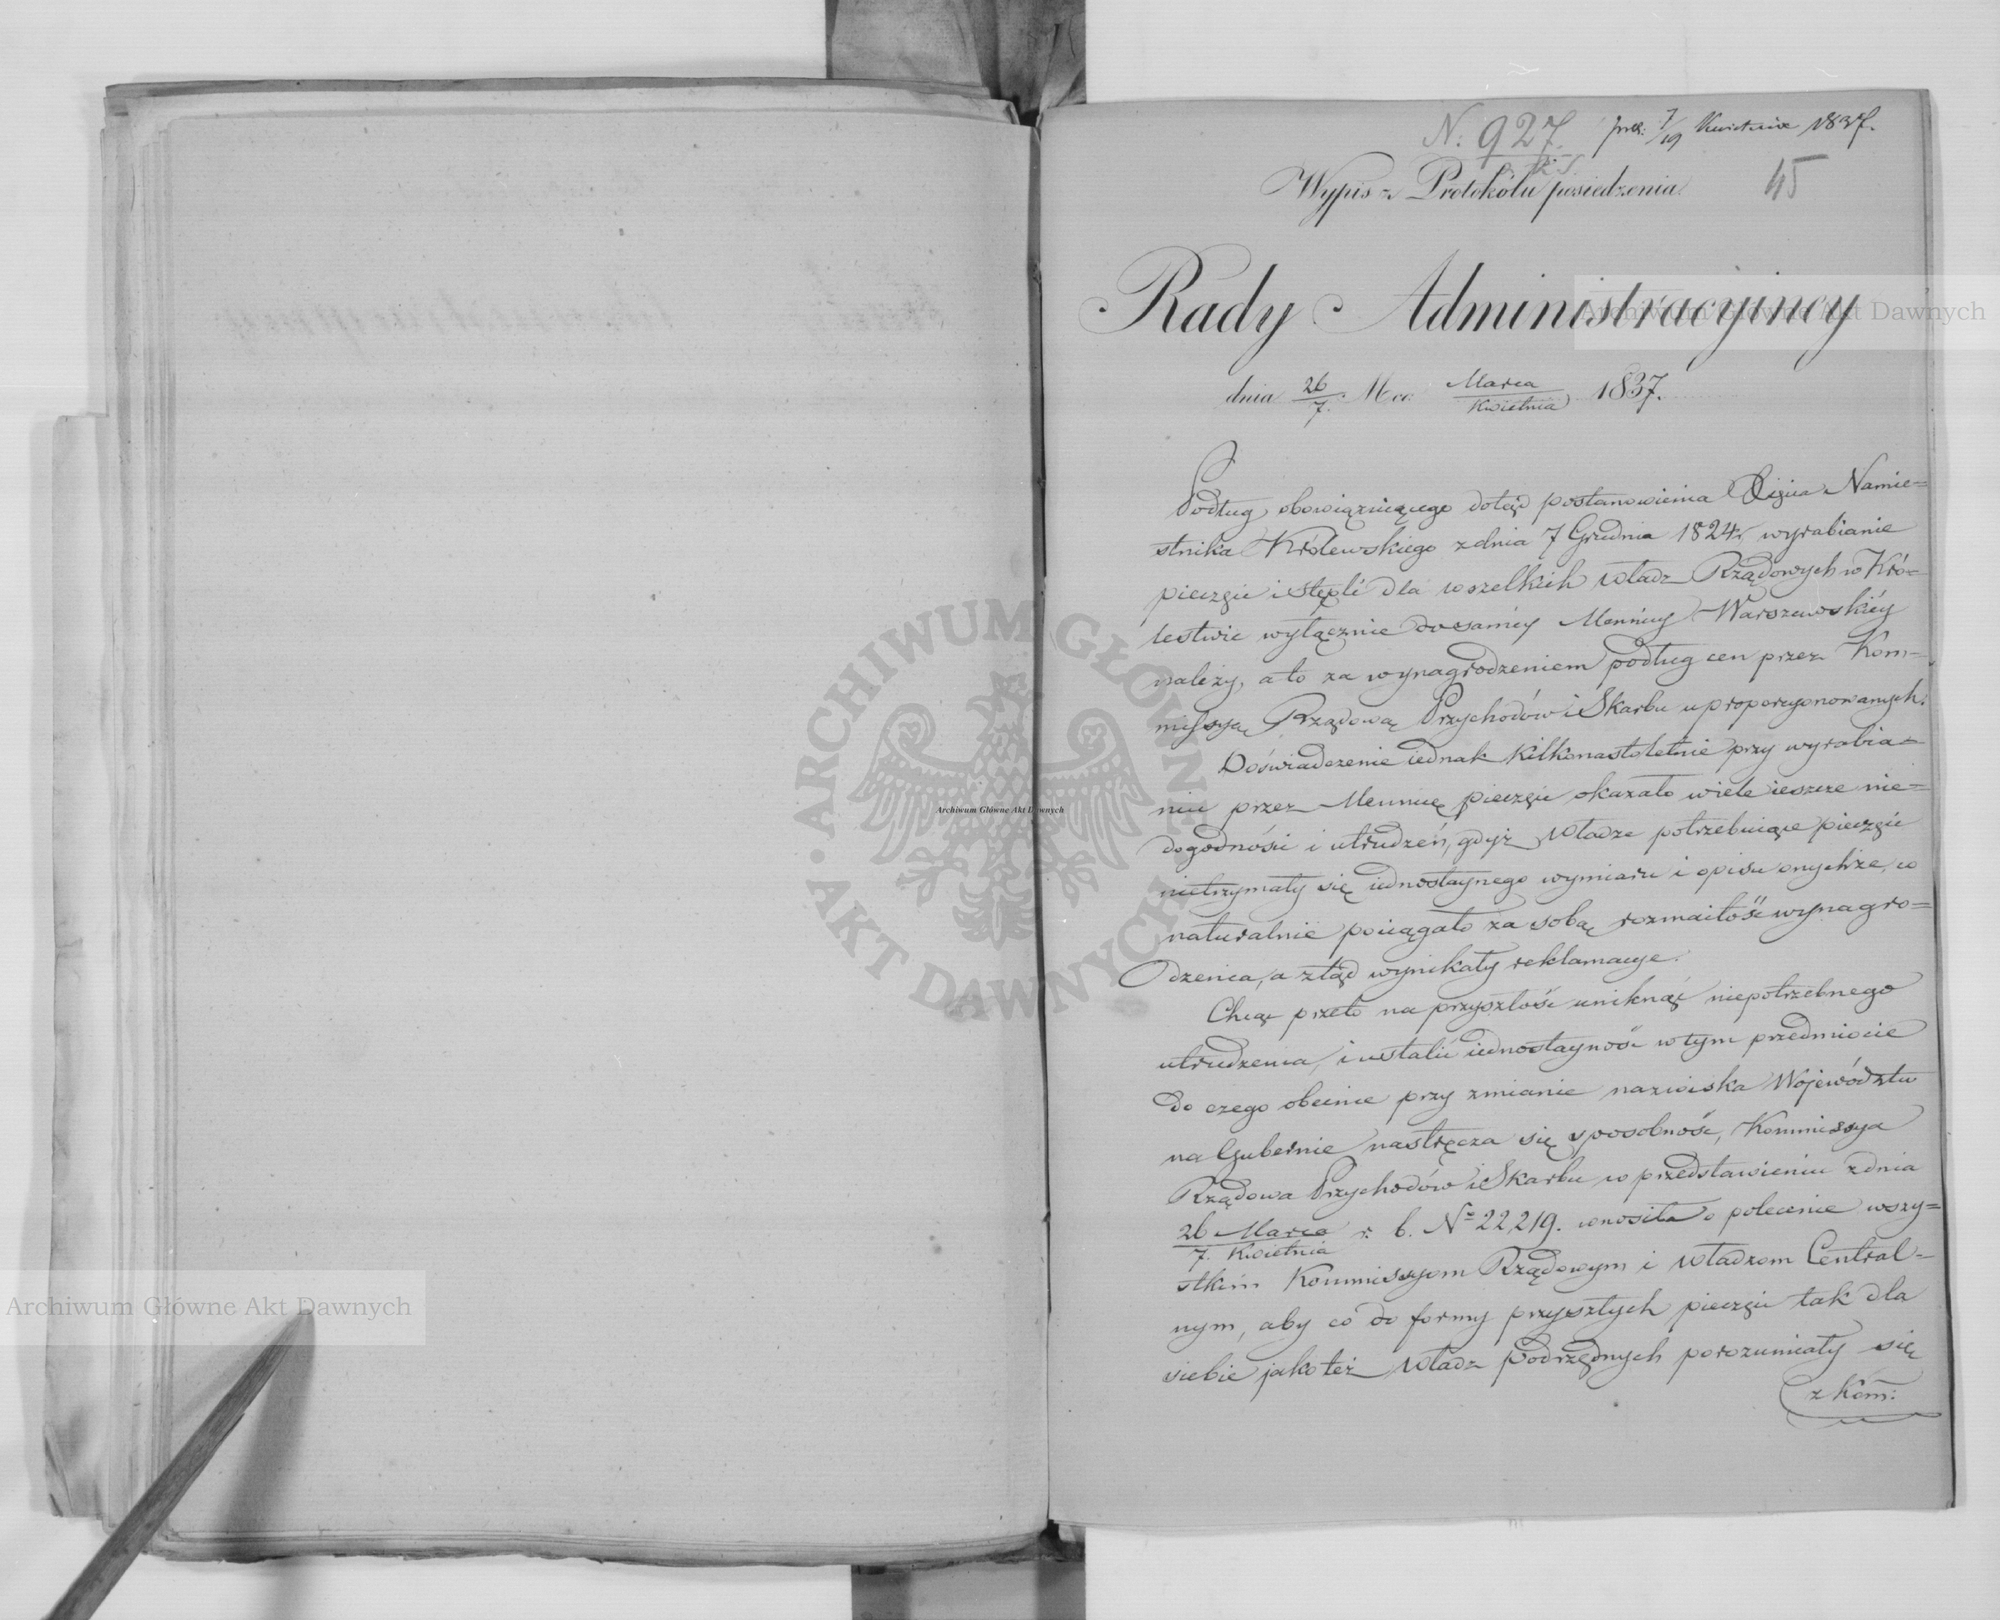 N. 927.
prez: 7/19 Kwietnia 1837.
45
Wypis z Protokółu posiedzenia
Rady Administracyjney
dnia 26/7. Mca Marca/Kwietnia 1837.
Podług obowiązuiącego dotąd postanowienia Xięcia Namie=
stnika Królewskiego z dnia 7 Grudnia 1824 r. wyrabianie
pieczęci i stępli dla wszelkich Władz Rządowych w Kró=
lestwie wyłącznie do saméy Mennicy Warszawskiéy
należy, a to za wynagrodzeniem podług cen przez Kom=
missyę Rządową Przychodów i Skarbu uproporcyonowanych.
Doświadczenie iednak kilkonastoletnie przy wyrabia=
niu przez Mennicę pieczęci okazało wiele ieszcze nie=
dogodności i utrudzeń, gdyż Władze potrzebuiące pieczęci
nietrzymały się iednostaynego wymiaru i opisu onychże, co
naturalnie pociągało za sobą rozmaitość wynagro=
dzenia, a ztąd wynikały reklamacye.
Chcąc przeto na przyszłość uniknąć niepotrzebnego
utrudzenia, i ustalić iednostayność w tym przedmiocie
do czego obecnie przy zmianie nazwiska Województw
na Gubernie nastręcza się sposobność, Kommissya
Rządowa Przychodów i Skarbu w przedstawieniu z dnia
26 Marca/7. Kwietnia r. b. No 22219. wnosiła o polecenie wszy=
stkim Kommissyom Rządowym i Władzom Central=
nym, aby co do formy przyszłych pieczęci tak dla
siebie jako też Władz podrzędnych porozumiały się
z Kom:
Archiwum Główne Akt Dawnych
Archiwum Główne Akt Dawnych
Archiwum Główne Akt Dawnych
ARCHIWUM GŁÓWNE AKT DAWNYCH